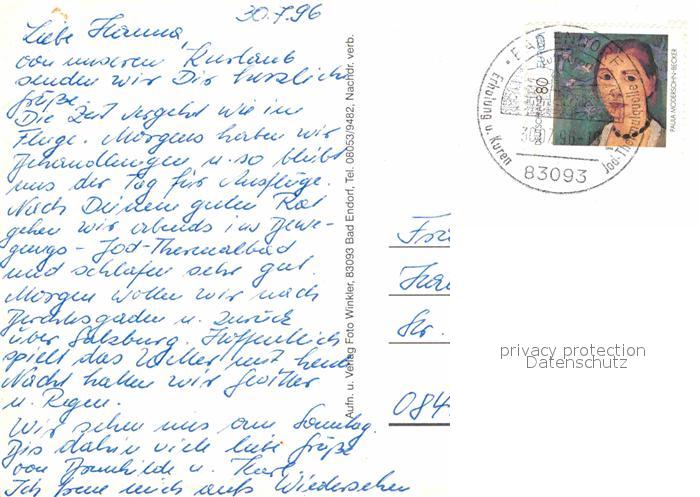 30.7.96
Liebe Hanna,
von unserem Kurlaub
senden wir Dir herzliche
Grüße.
Die Zeit vergeht wie im
Fluge. Morgens haben wir
Behandlungen u. so bleibt
uns der Tag für Ausflüge.
Nach Deinem guten Rat
gehen wir abends ins Bewe-
gungs-Jod-Thermalbad
und schlafen sehr gut.
Morgen wollen wir nach
Berchtesgaden u. zurück
über Salzburg. Hoffentlich
spielt das Wetter mit heute
Nacht hatten wir Gewitter
u. Regen.
Wir sehen uns am Sonntag.
Bis dahin viele liebe Grüße
von Brunhilde u. Karl
Ich freue mich aufs Wiedersehen
Aufn. u. Verlag Foto Winkler, 83093 Bad Endorf, Tel. 08053/9482, Nachdr. verb.
BAD ENDORF
Erholung u. Kuren
Jod-Thermalquelle
83093
80
PAULA MODERSOHN-BECKER
Str.
084
privacy protection
Datenschutz